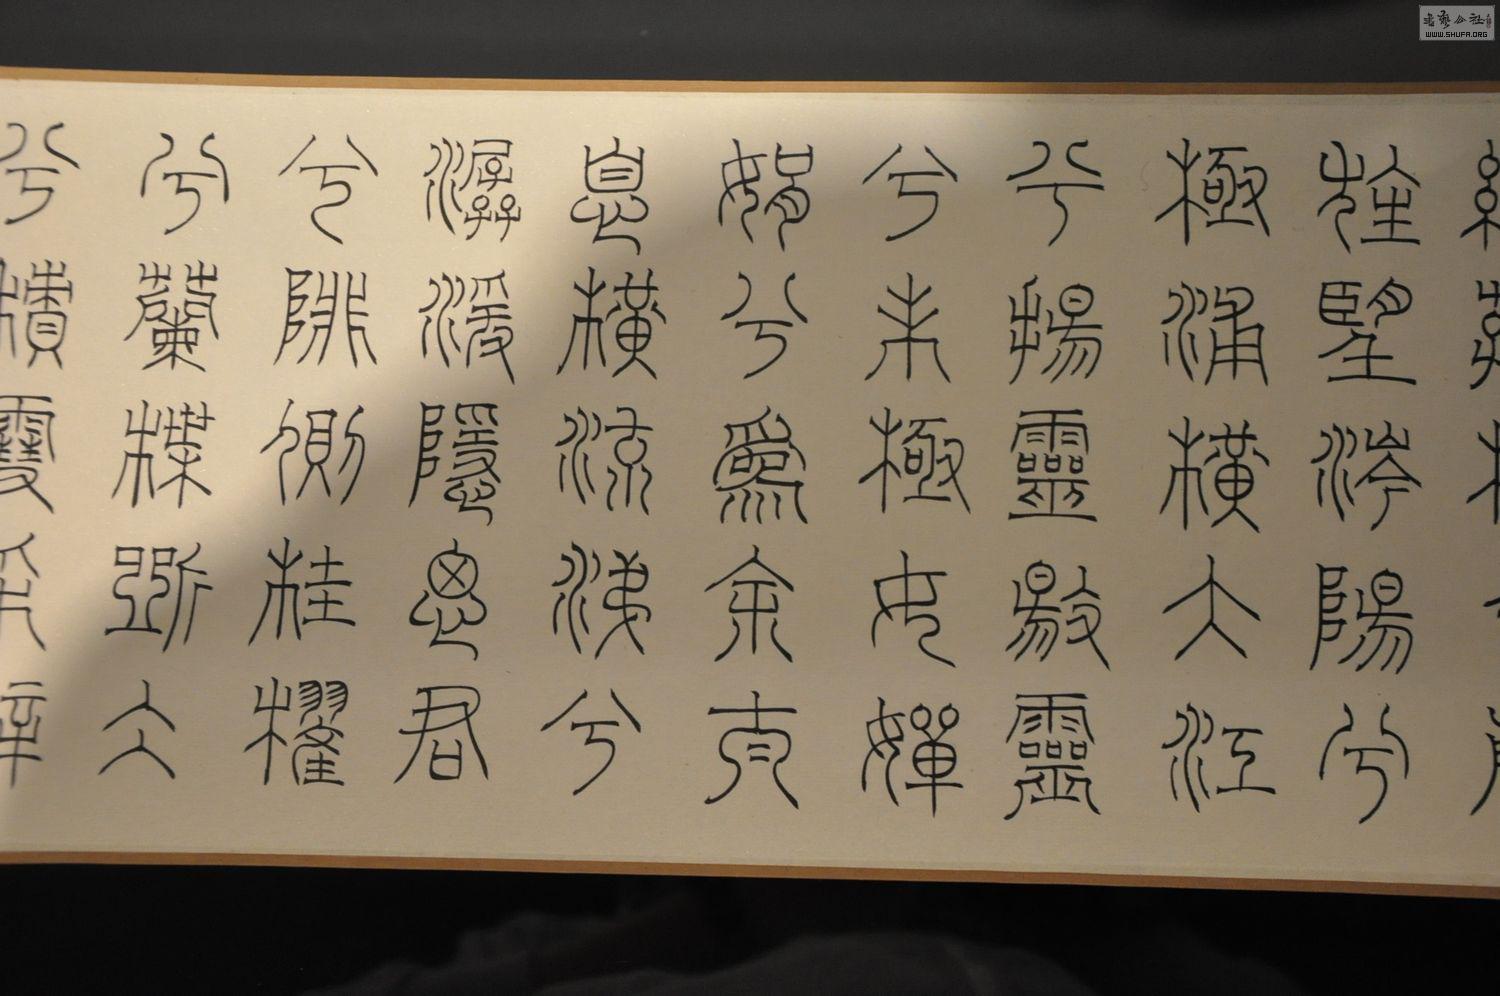 綢蓀橈兮蘭
旌望涔陽兮
極浦橫大江
兮揚靈揚靈
兮未極女嬋
娟兮爲余太
息橫流涕兮
潺湲隱思君
兮陫側桂櫂
兮蘭枻斲冰
兮積雪采薜
書藝公社
WWW.SHUFA.ORG